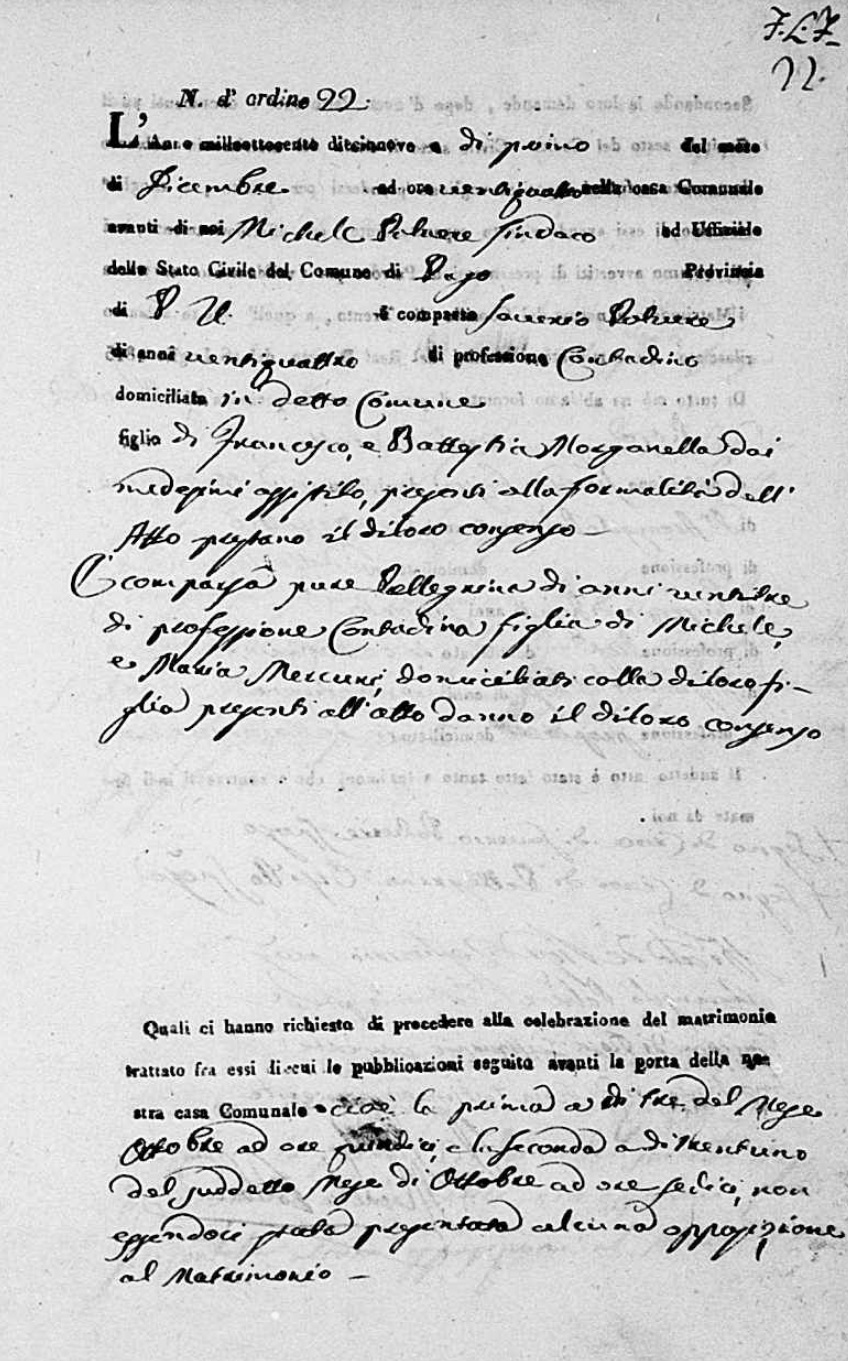 22.
N. d' ordine 22.
L' Anno milleottocento diecinnove a di primo del mese
di Dicembre ad ore ventiquattro nella casa Comunale
avanti di noi Michele Polvere Sindaco ed Uffiziale
dello Stato Civile del Comune di Pago Provincia
di P. U. è comparso Saverio Polvere
di anni ventiquattro di professione Contadino
domiciliato in detto Comune
figlio di Francesco, e Battestia Morganella dai
medesimi assistito, presenti alla formalità dell'
Atto prestano il diloro consenso —
È comparsa pure Pellegrina di anni ventitre
di professione Contadina figlia di Michele,
e Maria Mercuri, domiciliati colla diloro fi-
glia presenti all'atto danno il diloro consenso
Quali ci hanno richiesto di procedere alla celebrazione del matrimonio
trattato fra essi di cui le pubblicazioni seguite avanti la porta della no-
stra casa Comunale cioè la prima a di tre del Mese
Ottobre ad ore quindici, e la seconda a di trentuno
del suddetto Mese di Ottobre ad ore sedici, non
essendoci stata presentata alcuna opposizione
al Matrimonio —